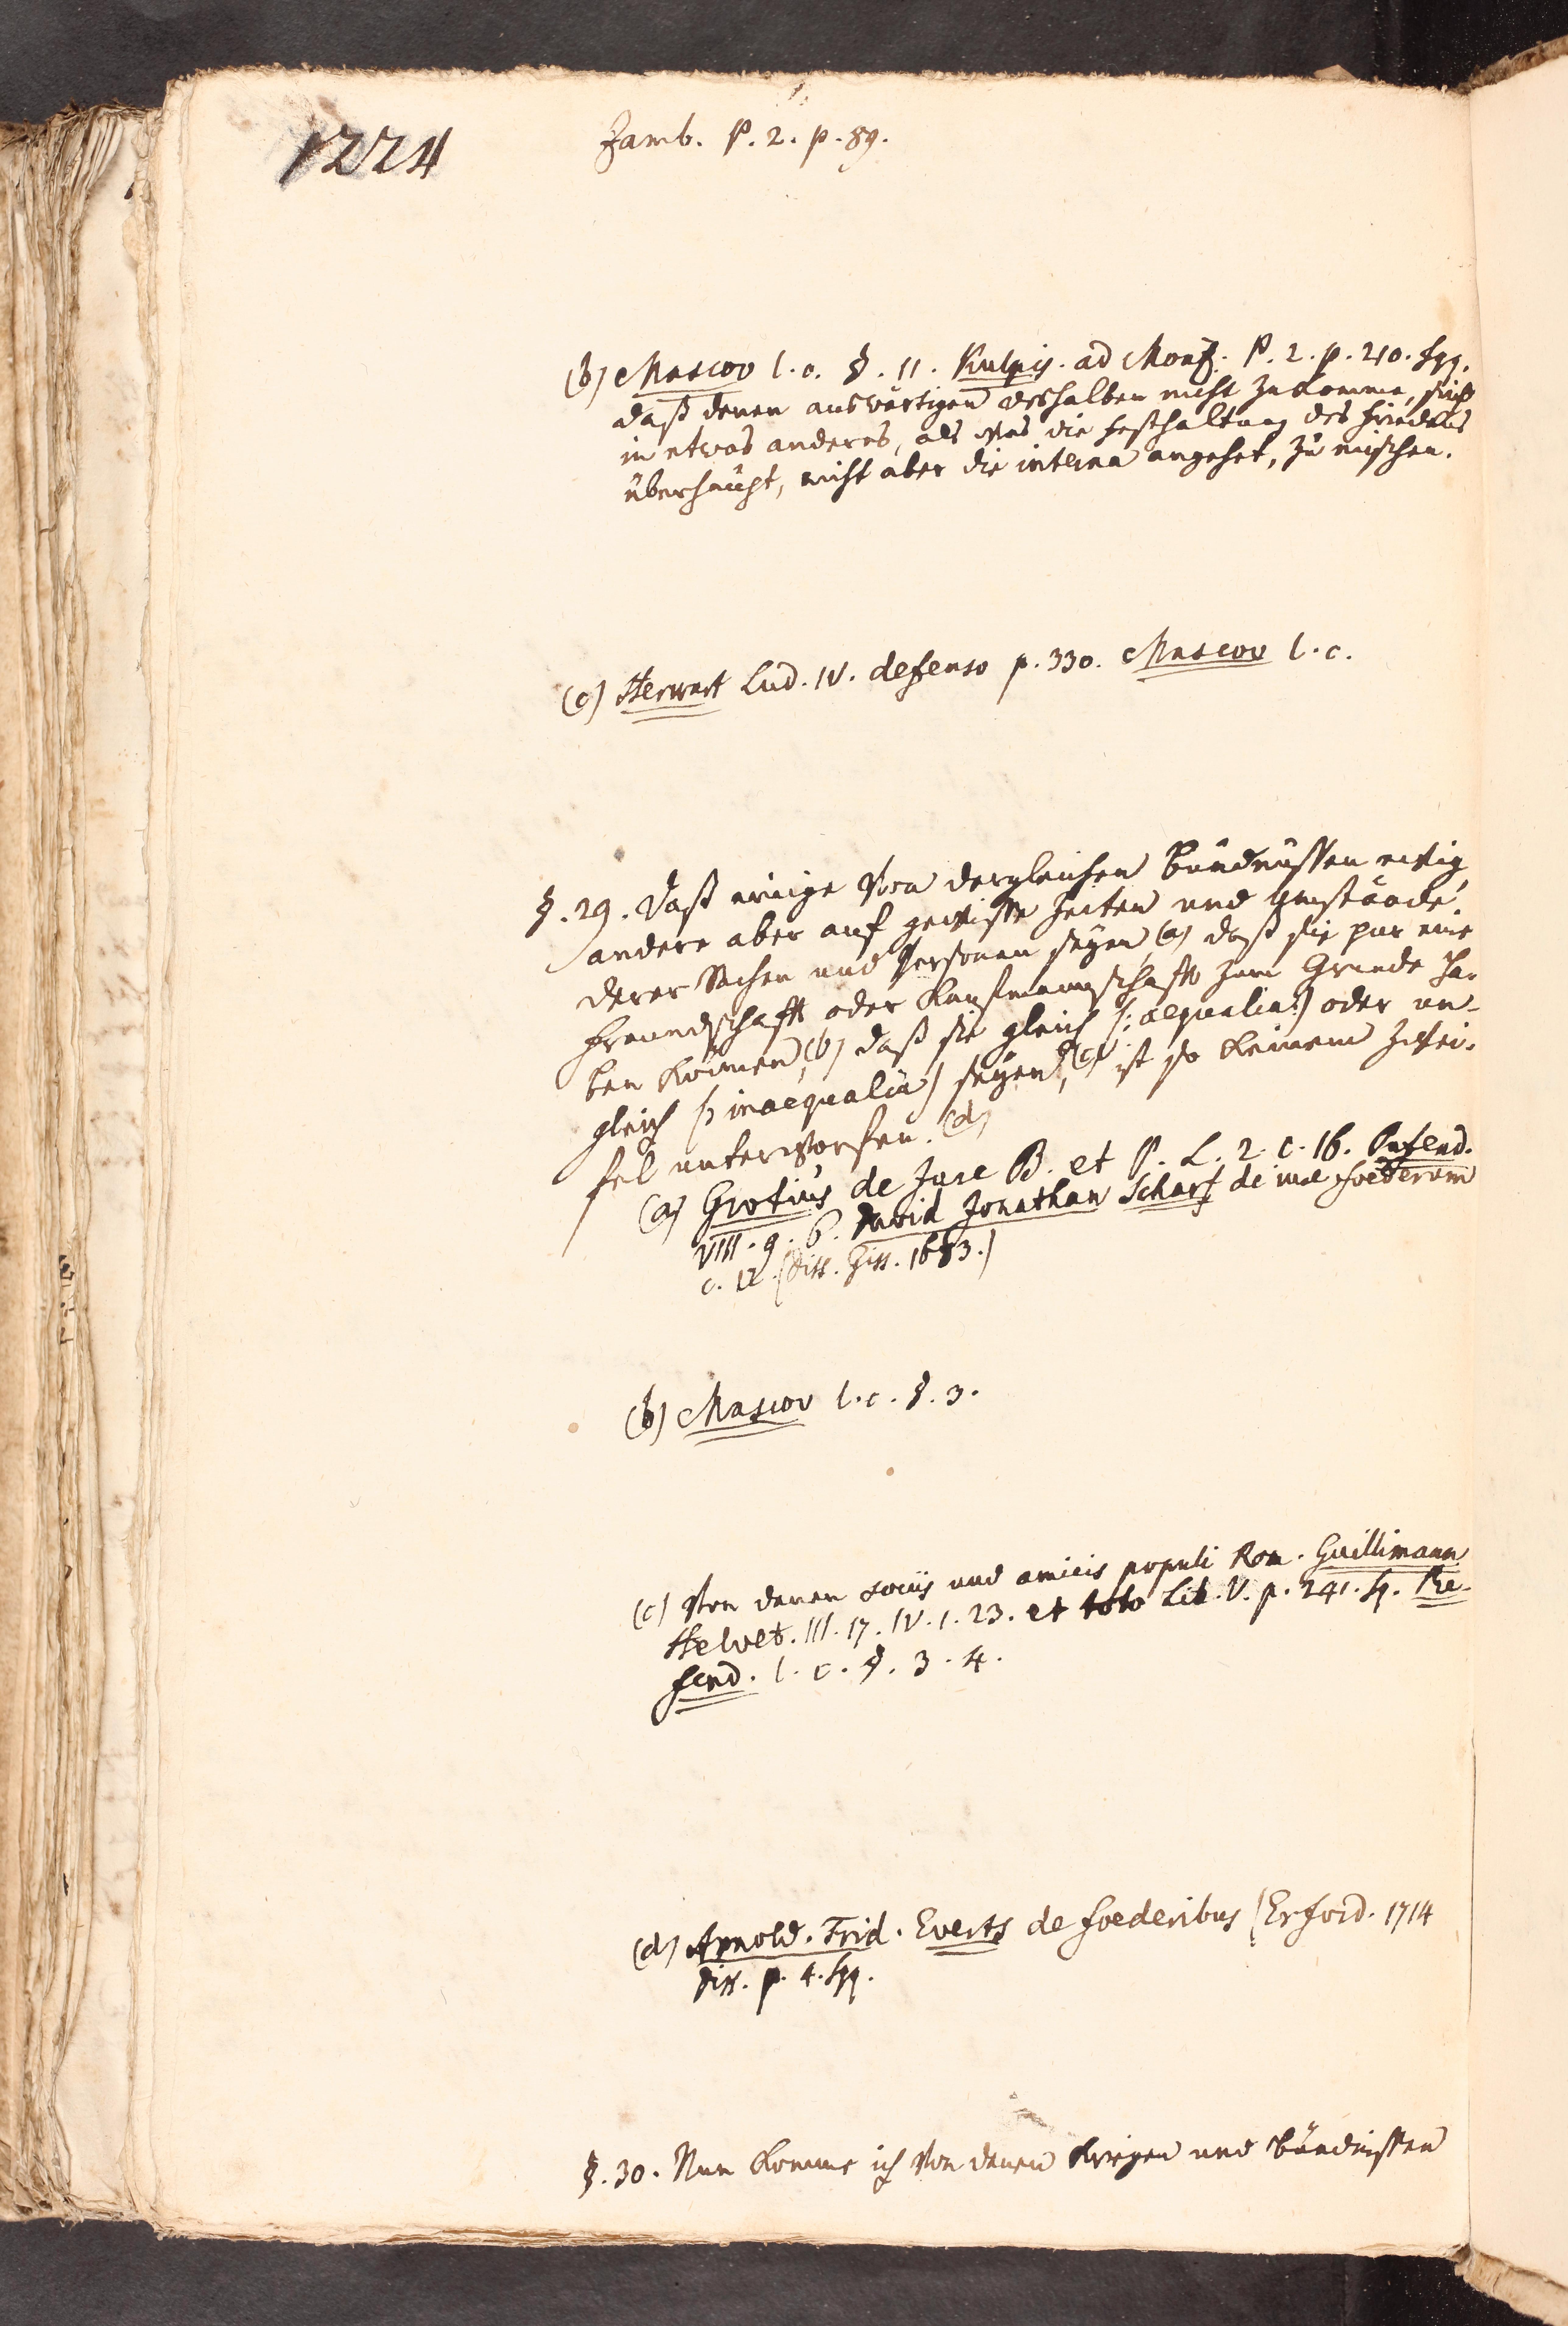 1224
Zamb. P. 2. p. 89.
(b) Mascov l. c. §. 11. Kulpis. ad Monz. P. 2. p. 210. sqq.
daß denen auswärtigen deshalben nicht zukomme, sich
in etwas anderes, als was die Festhaltung des Friedens
überhaupt, nicht aber die interna angehet, zu mischen.
(c) Herwart Lud. IV. defenso p. 330. Mascov l. c.
§. 29. Daß einige von dergleichen Bündnüssen ewig
andere aber auf gewisse Zeiten und Umstände
derer Sachen und Personen seyen, (a) daß sie pur eine
Freundschafft oder Kaufmannschafft zum Grunde ha-
ben können, (b) daß sie gleich (: aequalia :) oder un-
gleich (: inaequalia) seyen, (c) ist so keinem Zwei-
fel unterworfen. (d)
(a) Grotius de Jure B. et P. L. 2. c. 16. Pufend.
VIII. 9. 6. David Jonathan Scharf de foederum
c. 12. (diss. Giss. 1683.)
(b) Mascov l. c. §. 3.
(c) Von denen sociis und amicis populi Rom. Guillimann
Helvet. III. 17. IV. 1. 23. et toto Lib. V. p. 241. sq. Pu-
fend. l. c. §. 3. 4.
(d) Arnold. Frid. Everts de foederibus (Erford. 1714
diss. p. 4. sqq.
§. 30. Nun komme ich von denen Kriegen und Bündnissen